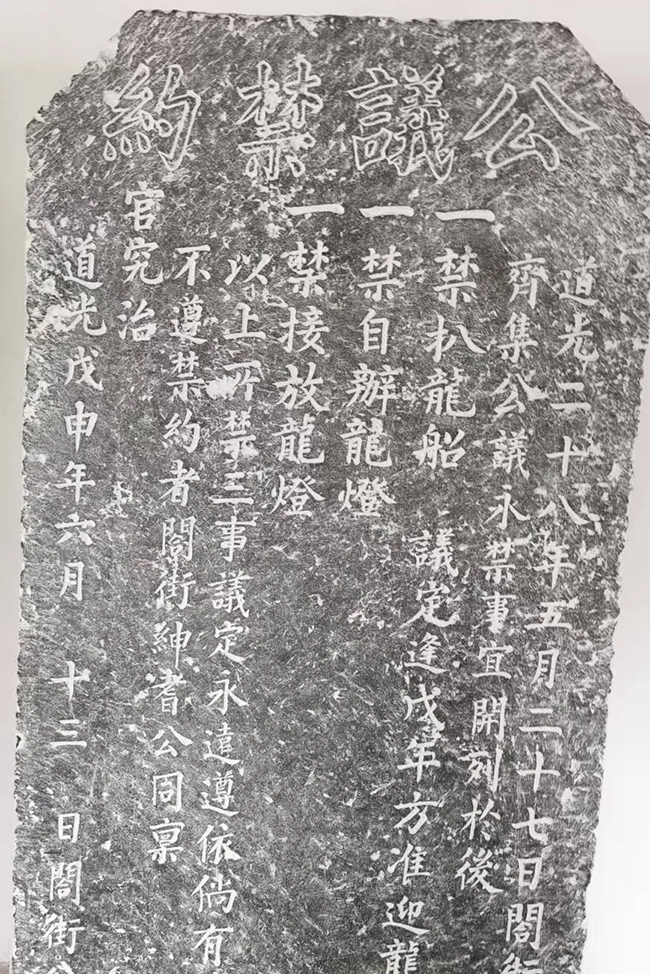 公議禁約
道光二十八年五月二十七日閤街
齊集公議永禁事宜開列於後
一禁扒龍船 議定逢戊年方准迎龍
一禁自辦龍燈
一禁接放龍燈
以上所禁三事議定永遠遵依倘有
不遵禁約者閤街紳耆公同稟
官究治
道光戊申年六月 十三 日閤街公